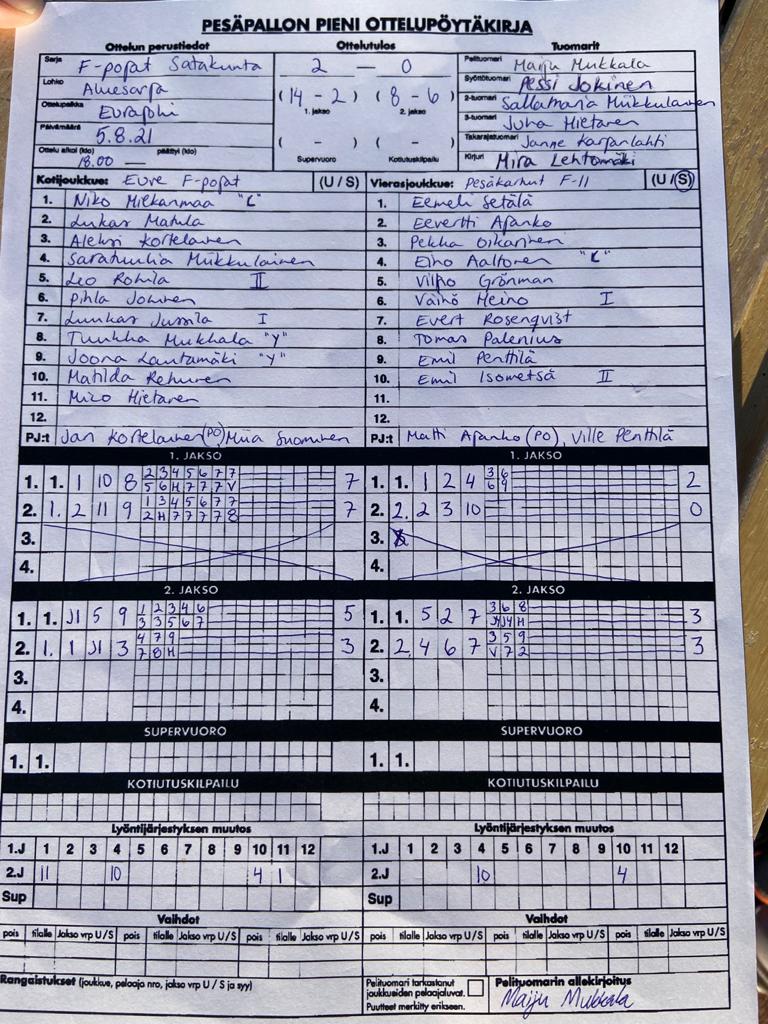 PESÄPALLON PIENI OTTELUPÖYTÄKIRJA
Ottelun perustiedot Ottelutulos Tuomarit
Sarja F-pojat Satakunta 2 — 0 Pelituomari Maiju Mukkala
Lohko Aluesarja (14 - 2) (8 - 6) Syöttötuomari Pessi Jokinen
Ottelupaikka 1. jakso 2. jakso 2-tuomari Sallamarja Mükkulainen
Päivämäärä 5.8.21 ( - ) ( - ) 3-tuomari Juha Hietanen
Ottelu alkoi (klo) päättyi (klo) Takarajatuomari Janne Karjanlahti
18.00 — Supervuoro Kotiutuskilpailu Kirjuri Mira Lehtomäki
Kotijoukkue: Eura F-pojat (U / S) Vierasjoukkue: Pesäkarhut F-11 (U / S)
1. Niko "C" 1. Eemeli Setälä
2. Lukas Matula 2. Eevertti Ajanko
3. Aleksi Kortelainen 3. Pekka Oikarinen
4. Saratuulia Mükkulainen 4. Eino Aaltonen "C"
5. Leo Rohila II 5. Vilho Grönman
6. Pihla Jokinen 6. Väinö Heino I
7. Luukas Jussila I 7. Evert Rosenqvist
8. Tuukka Mukkala "Y" 8. Tomas Palenius
9. Joona Lautamäki "Y" 9. Emil Penttilä
10. Matilda 10. Emil Isometsä II
11. Mico Hietanen 11.
12. 12.
PJ:t Jan Kortelainen (PO) Miia Suominen PJ:t Matti Ajanko (PO), Ville Penttilä
1. JAKSO 1. JAKSO
1. 1. 1 10 8 2 3 4 5 6 7 7 7 1. 1. 1 2 4 3 6 2
5 6 H 7 7 7 V 6 9
2. 1. 2 11 9 1 3 4 5 6 7 7 7 2. 2. 2 3 10 0
2 H 7 7 7 7 8
3. 3.
4. 4.
2. JAKSO 2. JAKSO
1. 1. J1 5 9 1 2 3 4 6 5 1. 1. 5 2 7 3 6 8 3
3 3 5 6 7 J4 J4 H
2. 1. 1 J1 3 4 7 9 3 2. 2. 4 6 7 3 5 9 3
7 8 H V 7 2
3. 3.
4. 4.
SUPERVUORO SUPERVUORO
1. 1. 1. 1.
KOTIUTUSKILPAILU KOTIUTUSKILPAILU
Lyöntijärjestyksen muutos Lyöntijärjestyksen muutos
1.J 1 2 3 4 5 6 7 8 9 10 11 12 1.J 1 2 3 4 5 6 7 8 9 10 11 12
2.J 11 10 4 1 2.J 10 4
Sup Sup
Vaihdot Vaihdot
pois tilalle Jakso vrp U/S pois tilalle Jakso vrp U/S pois tilalle Jakso vrp U/S pois tilalle Jakso vrp U/S pois tilalle Jakso vrp U/S pois tilalle Jakso vrp U/S
Rangaistukset (joukkue, pelaaja nro, jakso vrp U / S ja syy) Pelituomari tarkastanut Pelituomarin allekirjoitus
joukkueiden pelaajaluvat. Maiju Mukkala
Puutteet merkitty erikseen.